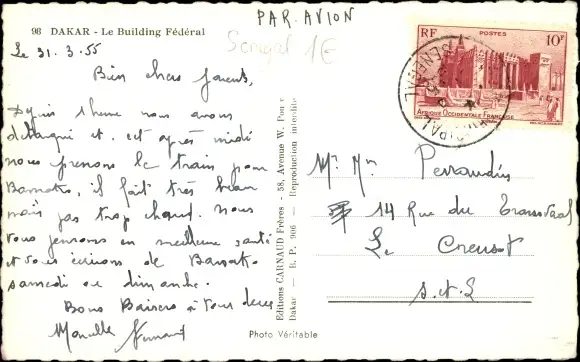 PAR AVION
98 DAKAR - Le Building Fédéral
Senegal 1€
Le 31.3.55
Bien chers parents,
Depuis 1 heure nous avons
débarqué et cet après midi
nous prenons le train pour
Bamako, il fait très beau
mais pas trop chaud. Nous
vous pensons en meilleure santé
et vous écrirons de Bamako
samedi ou dimanche.
Bons Baisers à tous deux
Editions CARNAUD Frères - 58, Avenue W. Ponty
Dakar - R. P. 906 - Reproduction interdite
Photo Véritable
RF POSTES 10F
AFRIQUE OCCIDENTALE FRANÇAISE
SENEGAL
Mr. Mm Perraudin
14 Rue du Transvaal
Le Creusot
S.et.L